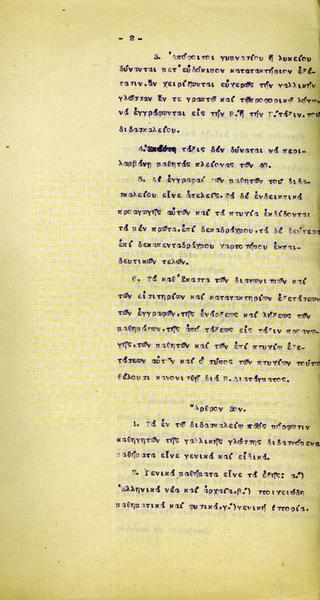 - 2 -
3. Ἀπόφοιτοι γυμνασίου ἤ λυκείου
δύνανται μετ' εὐδόκιμον κατατακτήριον ἐξέ-
τασιν, ἄν χειρίζωνται εὐχερῶς τήν γαλλικήν
γλῶσσαν ἔν τε γραπτῷ καί προφορικῷ λόγῳ,
νά ἐγγράφωνται εἰς τήν Β. ἤ τήν Γ. τάξιν τοῦ
διδασκαλείου.
4. Ἑκάστη τάξις δέν δύναται νά περι-
λαμβάνῃ μαθητάς πλείονας τῶν 40.
5. Αἱ ἐγγραφαί τῶν μαθητῶν τοῦ διδα-
σκαλείου εἶνε ἀτελεῖς. Τά δέ ἐνδεικτικά
προαγωγῆς αὐτῶν καί τά πτυχία ἐκδίδονται
τά μέν πρῶτα, ἐπί δεκαδράχμου, τά δέ δεύτερα
ἐπί δεκαπενταδράχμου χαρτοσήμου ἐκπαι-
δευτικῶν τελῶν.
6. Τά καθ' ἕκαστα τῶν διαγωνισμῶν καί
τῶν εἰσιτηρίων καί κατατακτηρίων ἐξετάσεων
τῶν ἐγγραφῶν, τῆς ἐνάρξεως καί λήξεως τῶν
μαθημάτων, τῆς ἀπό τάξεως εἰς τάξιν προαγω-
γῆς, τῶν μαθητῶν καί τῶν ἐπί πτυχίῳ ἐξε-
τάσεων αὐτῶν καί ὁ τύπος τῶν πτυχίων τούτων
θέλουσι κανονισθῆ διά Β. Διατάγματος.
Ἄρθρον 3ον.
1. Τά ἐν τῷ διδασκαλείῳ πρός μόρφωσιν
καθηγητῶν τῆς γαλλικῆς γλώσσης διδασκόμενα
μαθήματα εἶνε γενικά καί εἰδικά.
2. Γενικά μαθήματα εἶνε τά ἑξῆς: α.)
Ἑλληνικά νέα καί ἀρχαῖα, β.) στοιχειώδη
μαθηματικά καί φυσικά, γ.) γενική ἱστορία.